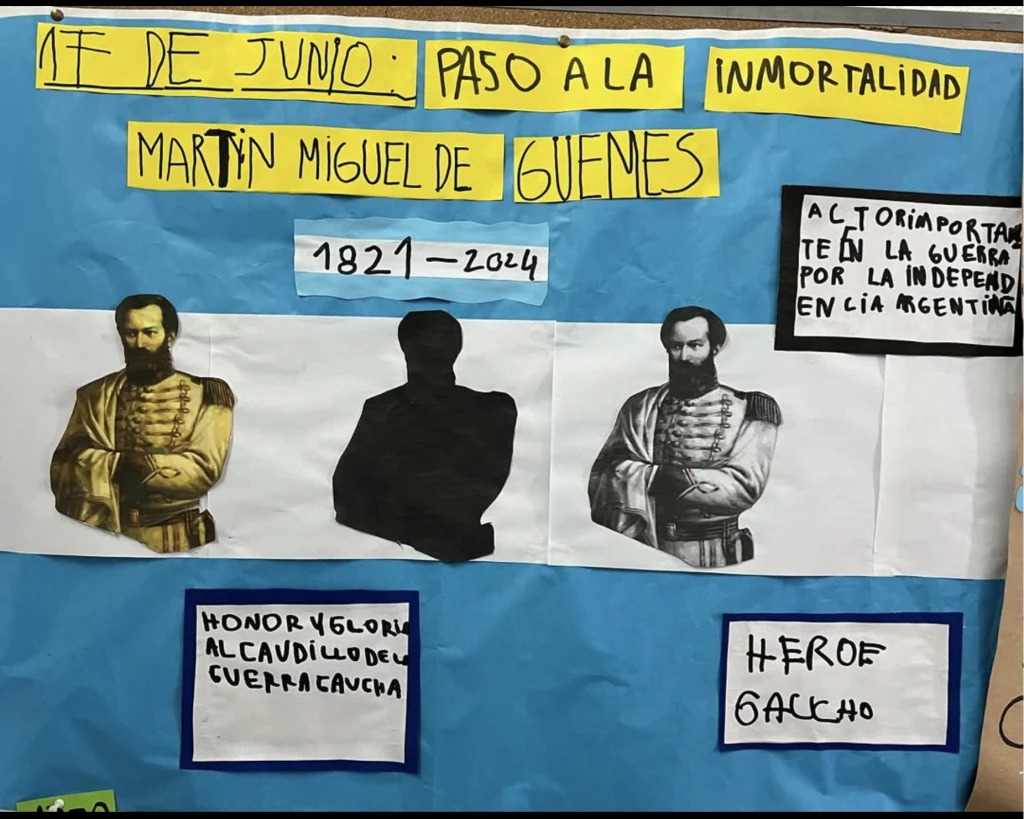 17 DE JUNIO: PASO A LA INMORTALIDAD
MARTIN MIGUEL DE GÜEMES
1821-2024
ACTOR IMPORTAN
TE EN LA GUERRA
POR LA INDEPEND
ENCIA ARGENTINA
HONOR Y GLORIA
AL CAUDILLO DE LA
GUERRA GAUCHA
HEROE
GAUCHO